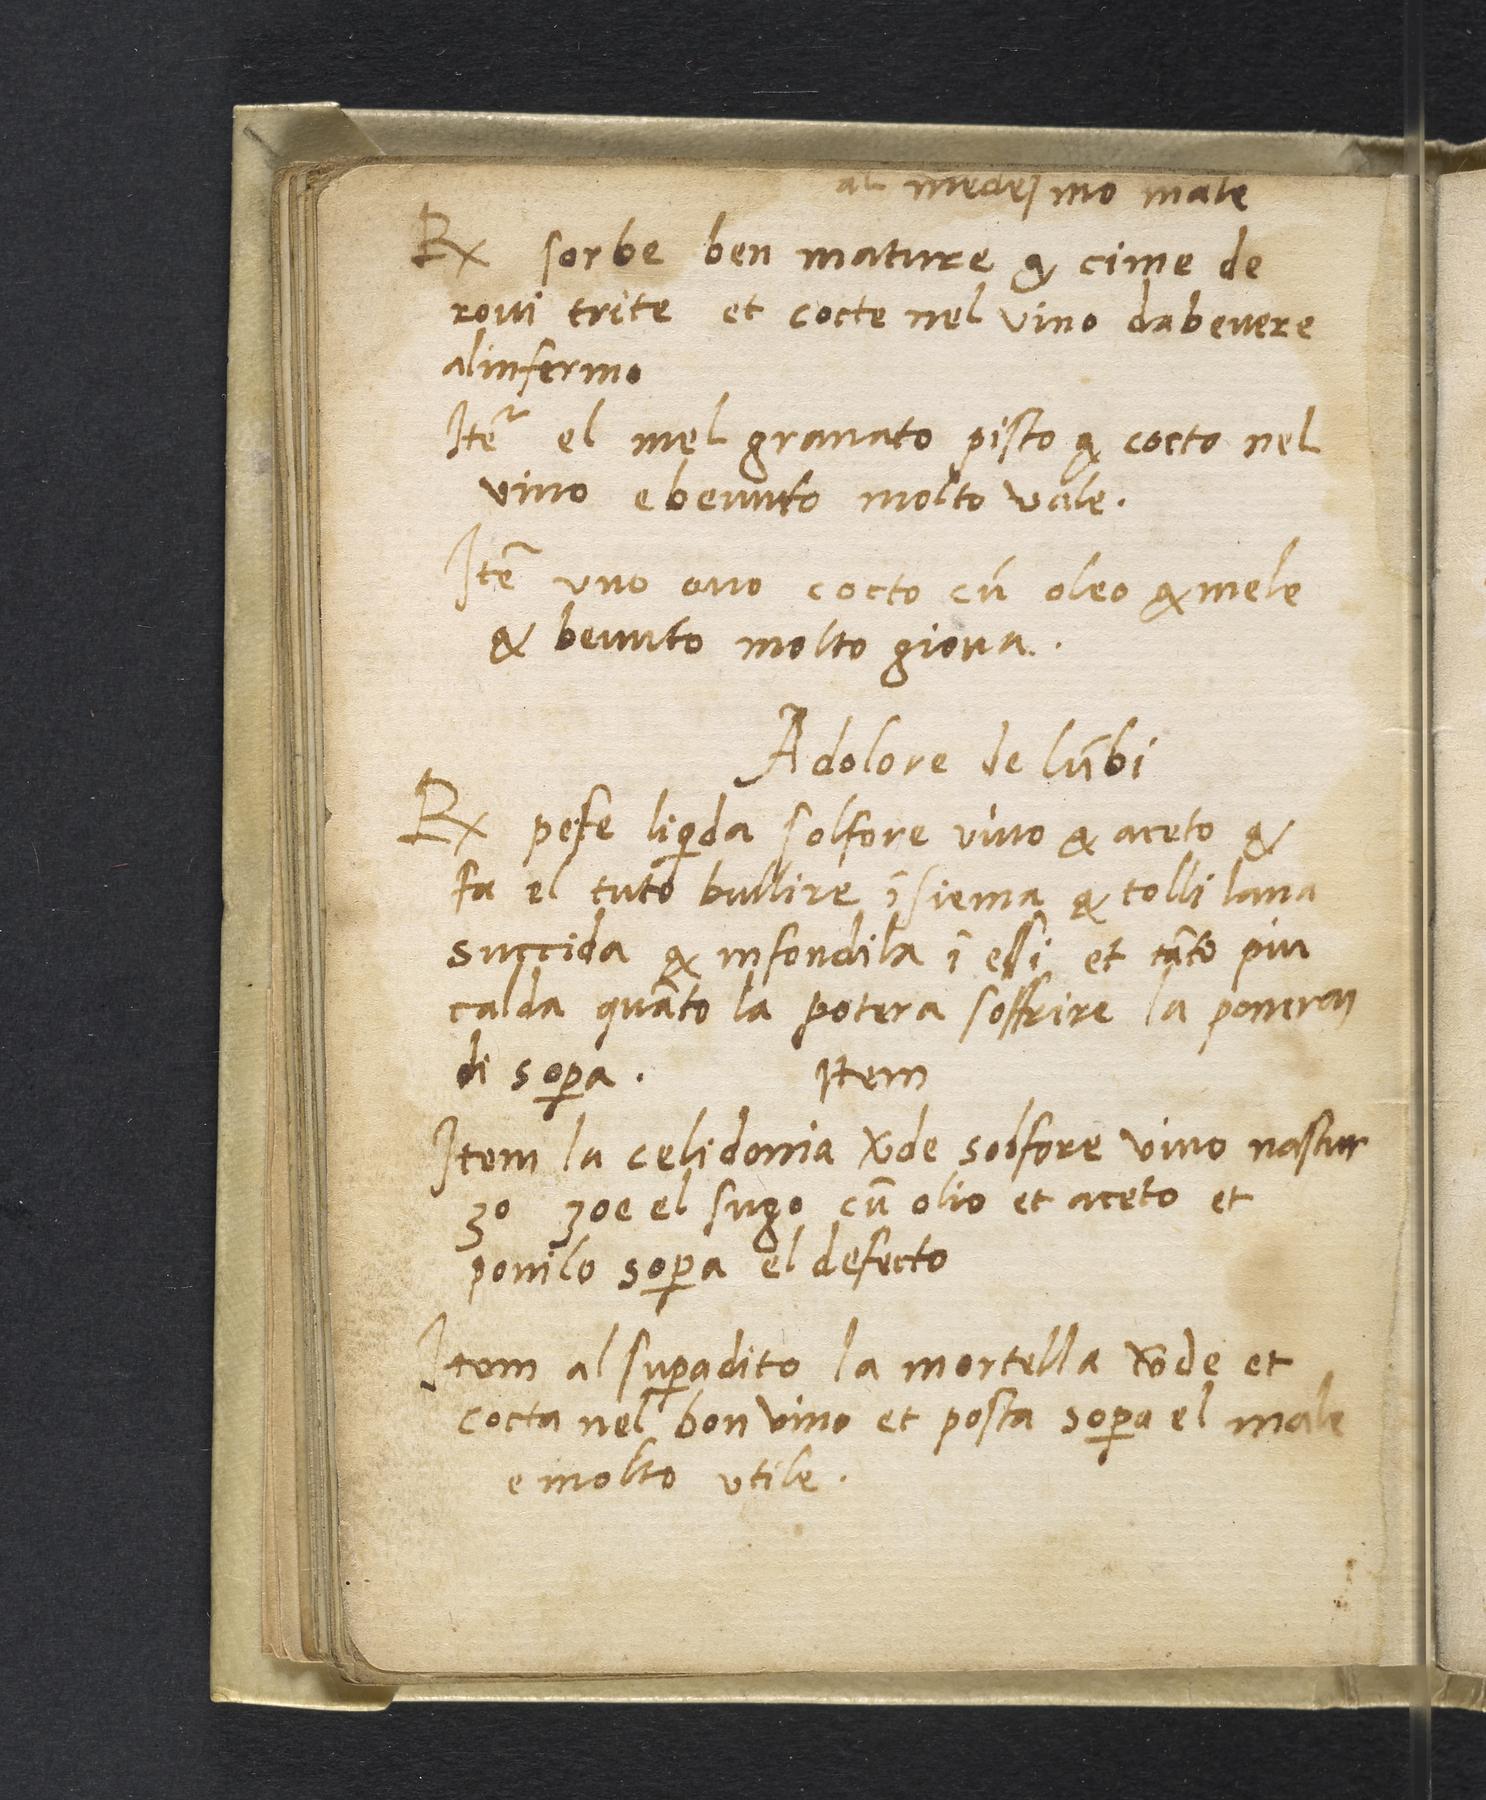 al medesmo male
Rx sorbe ben mature & cime de
roui trite et cocte nel vino dabeuere
alinfermo
Itē el mel granato pisto & cocto nel
vino e beuuto molto vale.
Itē uno ouo cocto cū oleo & mele
& beuuto molto gioua.
A dolore de lūbi
Rx pese liqda solfore viuo & aceto &
fa el tuto bullire īsiema & tolli lana
succida & infondila ī essi et tāto piu
calda quāto la potera soffrire la ponerai
di sopa. Item
Item la celidonia v̄de solfore viuo nastur
zo zoe el sugo cū olio et aceto et
ponilo sopa el defecto
Item al supadito la mortella v̄de et
cocta nel bon vino et posta sopa el male
e molto vtile.